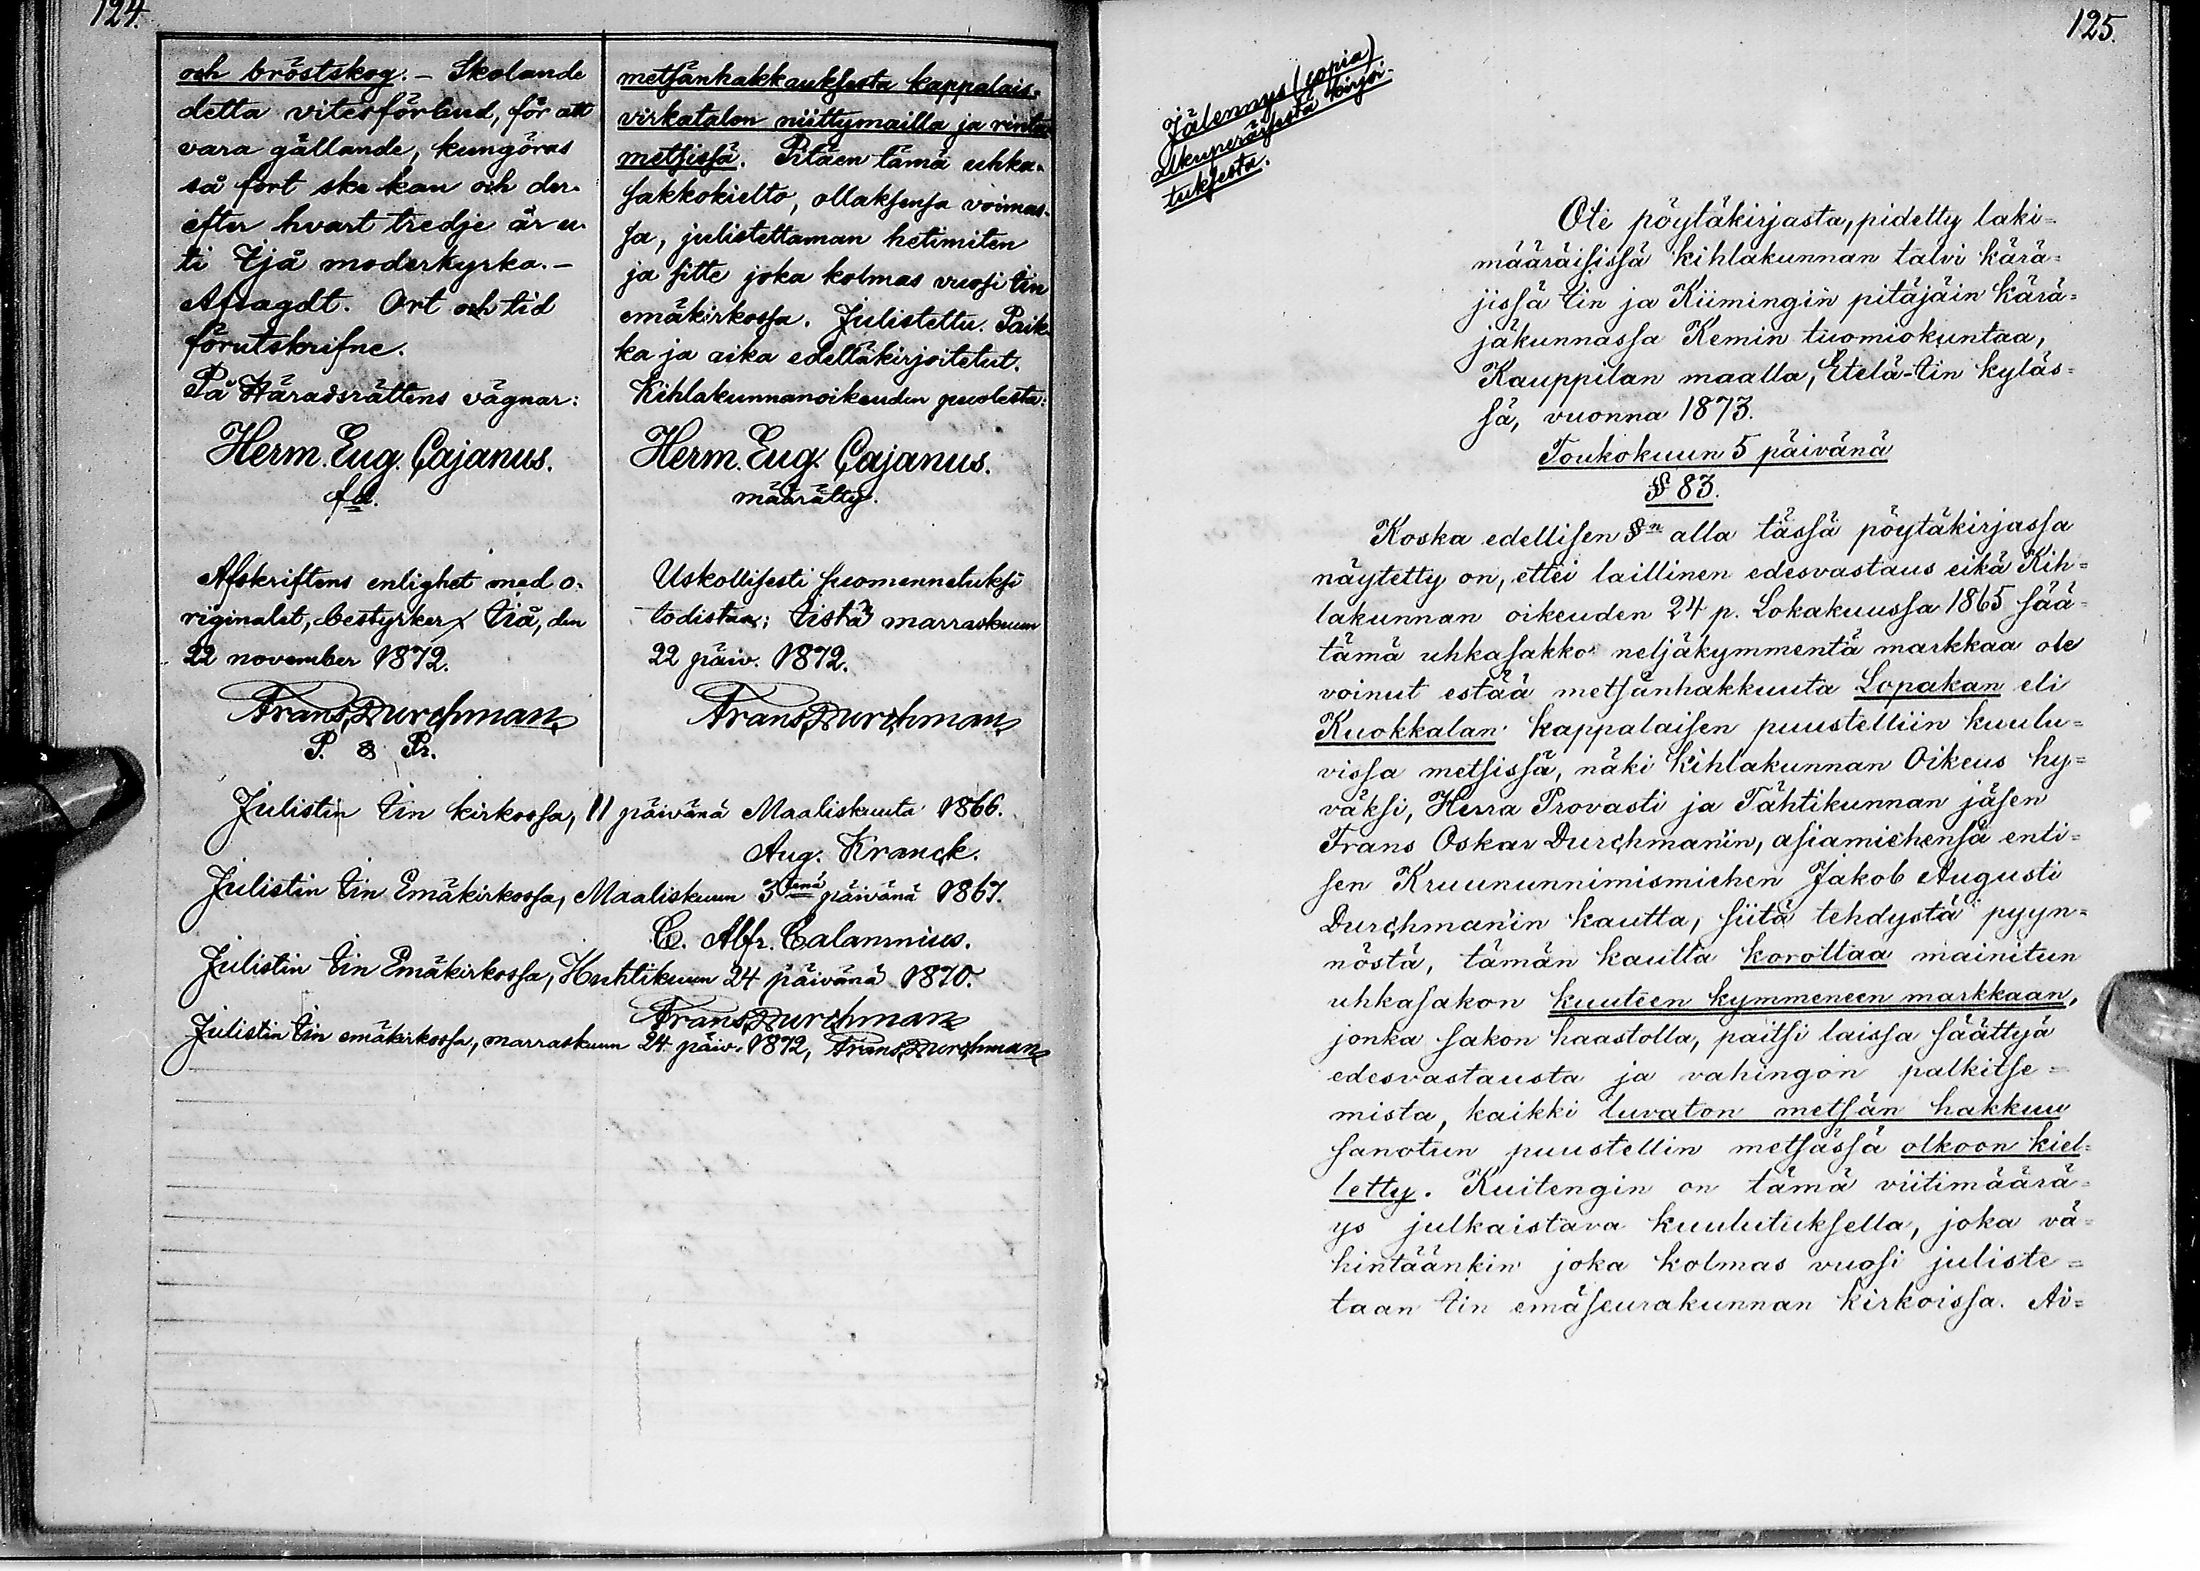 124.
och bröstskog. – Skolande
detta vitesförbud, för att
vara gällande, kungöras
så fort ske kan och der-
efter hvart tredje år u-
ti Ijå moderkyrka. –
Afsagdt. Ort och tid
förutskrifne.
På Häradsrättens vägnar:
Herm. Eug. Cajanus.
fd.
Afskriftens enlighet med o-
riginalet, bestyrker; Iiå, den
22 november 1872.
Frans Durchman
P. & Pr.
metsänhakkauksesta kappalais-
virkatalon niittymailla ja rinta
metsissä. Pitäen tämä uhka-
sakkokielto, ollaksensa voimas-
sa, julistettaman hetimiten
ja sitte joka kolmas vuosi Iin
emäkirkossa. Julistettu. Paik-
ka ja aika edelläkirjoitetut.
Kihlakunnanoikeuden puolesta:
Herm. Eug. Cajanus.
määrätty.
Uskollisesti suomennetuksi
todistaa; Iistä marraskuun
22 päiv. 1872.
Frans Durchman
Julistin Iin kirkossa, 11 päivänä Maaliskuuta 1866.
Aug. Kranck.
Julistin Iin Emäkirkossa, Maaliskuun 3 tenä päivänä 1867.
C. Alfr. Calamnius.
Julistin Iin Emäkirkossa, Huhtikuun 24 päivänä 1870.
Frans Durchman
Julistin Iin emäkirkossa, marraskuun 24 päiv. 1872, Frans Durchman
125.
Jälennys (copia)
alkuperäisestä kirjoi-
tuksesta.
Ote pöytäkirjasta, pidetty laki=
määräisissä kihlakunnan talvi kärä=
jissä Iin ja Kiimingin pitäjäin kärä=
jäkunnassa Kemin tuomiokuntaa,
Kauppilan maalla, Etelä-Iin kyläs=
sä, vuonna 1873.
Toukokuun 5 päivänä
§ 83.
Koska edellisen §n alla tässä pöytäkirjassa
näytetty on, ettei laillinen edesvastaus eikä Kih=
lakunnan oikeuden 24 p. Lokakuussa 1865 sää=
tämä uhkasakko neljäkymmentä markkaa ole
voinut estää metsänhakkuuta Lopakan eli
Kuokkalan kappalaisen puustelliin kuulu=
vissa metsissä, näki Kihlakunnan Oikeus hy=
väksi, Herra Provasti ja Tähtikunnan jäsen
Frans Oskar Durchman'in, asiamiehensä enti=
sen Kruununnimismiehen Jakob Augusti
Durchman'in kautta, siitä tehdystä pyyn=
nöstä, tämän kautta korottaa mainitun
uhkasakon kuuteen kymmeneen markkaan,
jonka sakon haastolla, paitsi laissa säättyä
edesvastausta ja vahingon palkitse=
mista, kaikki luvaton metsän hakkuu
sanotun puustellin metsässä olkoon kiel=
letty. Kuitengin on tämä viitimäärä=
ys julkaistava kuulutuksella, joka vä=
hintäänkin joka kolmas vuosi juliste=
taan Iin emäseurakunnan kirkoissa. Ai=